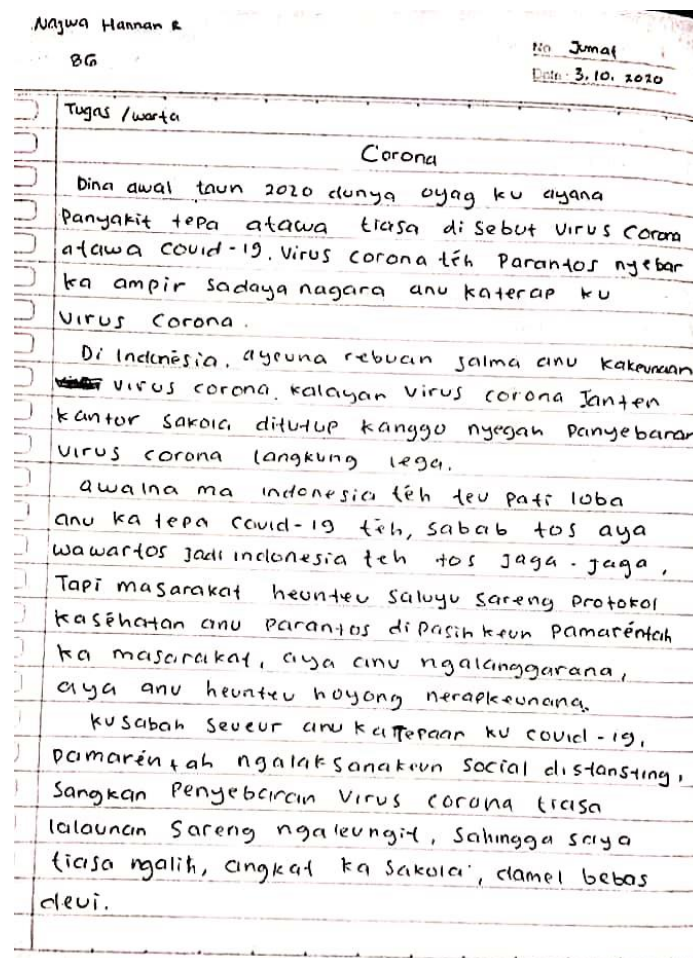 Najwa Hannan R
8G
No Jumat
Date 3.10.2020
Tugas / warta
Corona
Dina awal taun 2020 dunya oyag ku ayana
Panyakit tepa atawa tiasa di sebut virus corona
atawa Covid-19. Virus corona téh Parantos nyebar
ka ampir sadaya nagara anu katerap ku
virus corona.
Di Indonésia, ayeuna rebuan jalma anu kakeunaan
virus corona. kalayan virus corona Janten
kantor sakola ditutup kanggo nyegah Panyebaran
virus corona langkung lega.
awalna ma indonesia téh teu pati loba
anu ka tepa covid-19 téh, sabab tos aya
wawartos Jadi indonesia teh tos Jaga-jaga,
Tapi masarakat heunteu saluyu sareng Protokol
kaséhatan anu parantos dipasihkeun Pamaréntah
ka masarakat, aya anu ngalanggarana,
aya anu heunteu hoyong nerapkeunana.
kusabab seueur anu katepaan ku covid-19,
pamaréntah ngalaksanakeun social distansting,
sangkan Penyebaran virus corona tiasa
lalaunan sareng ngaleungit, sahingga saya
tiasa ngalih, angkat ka sakola, damel bebas
deui.